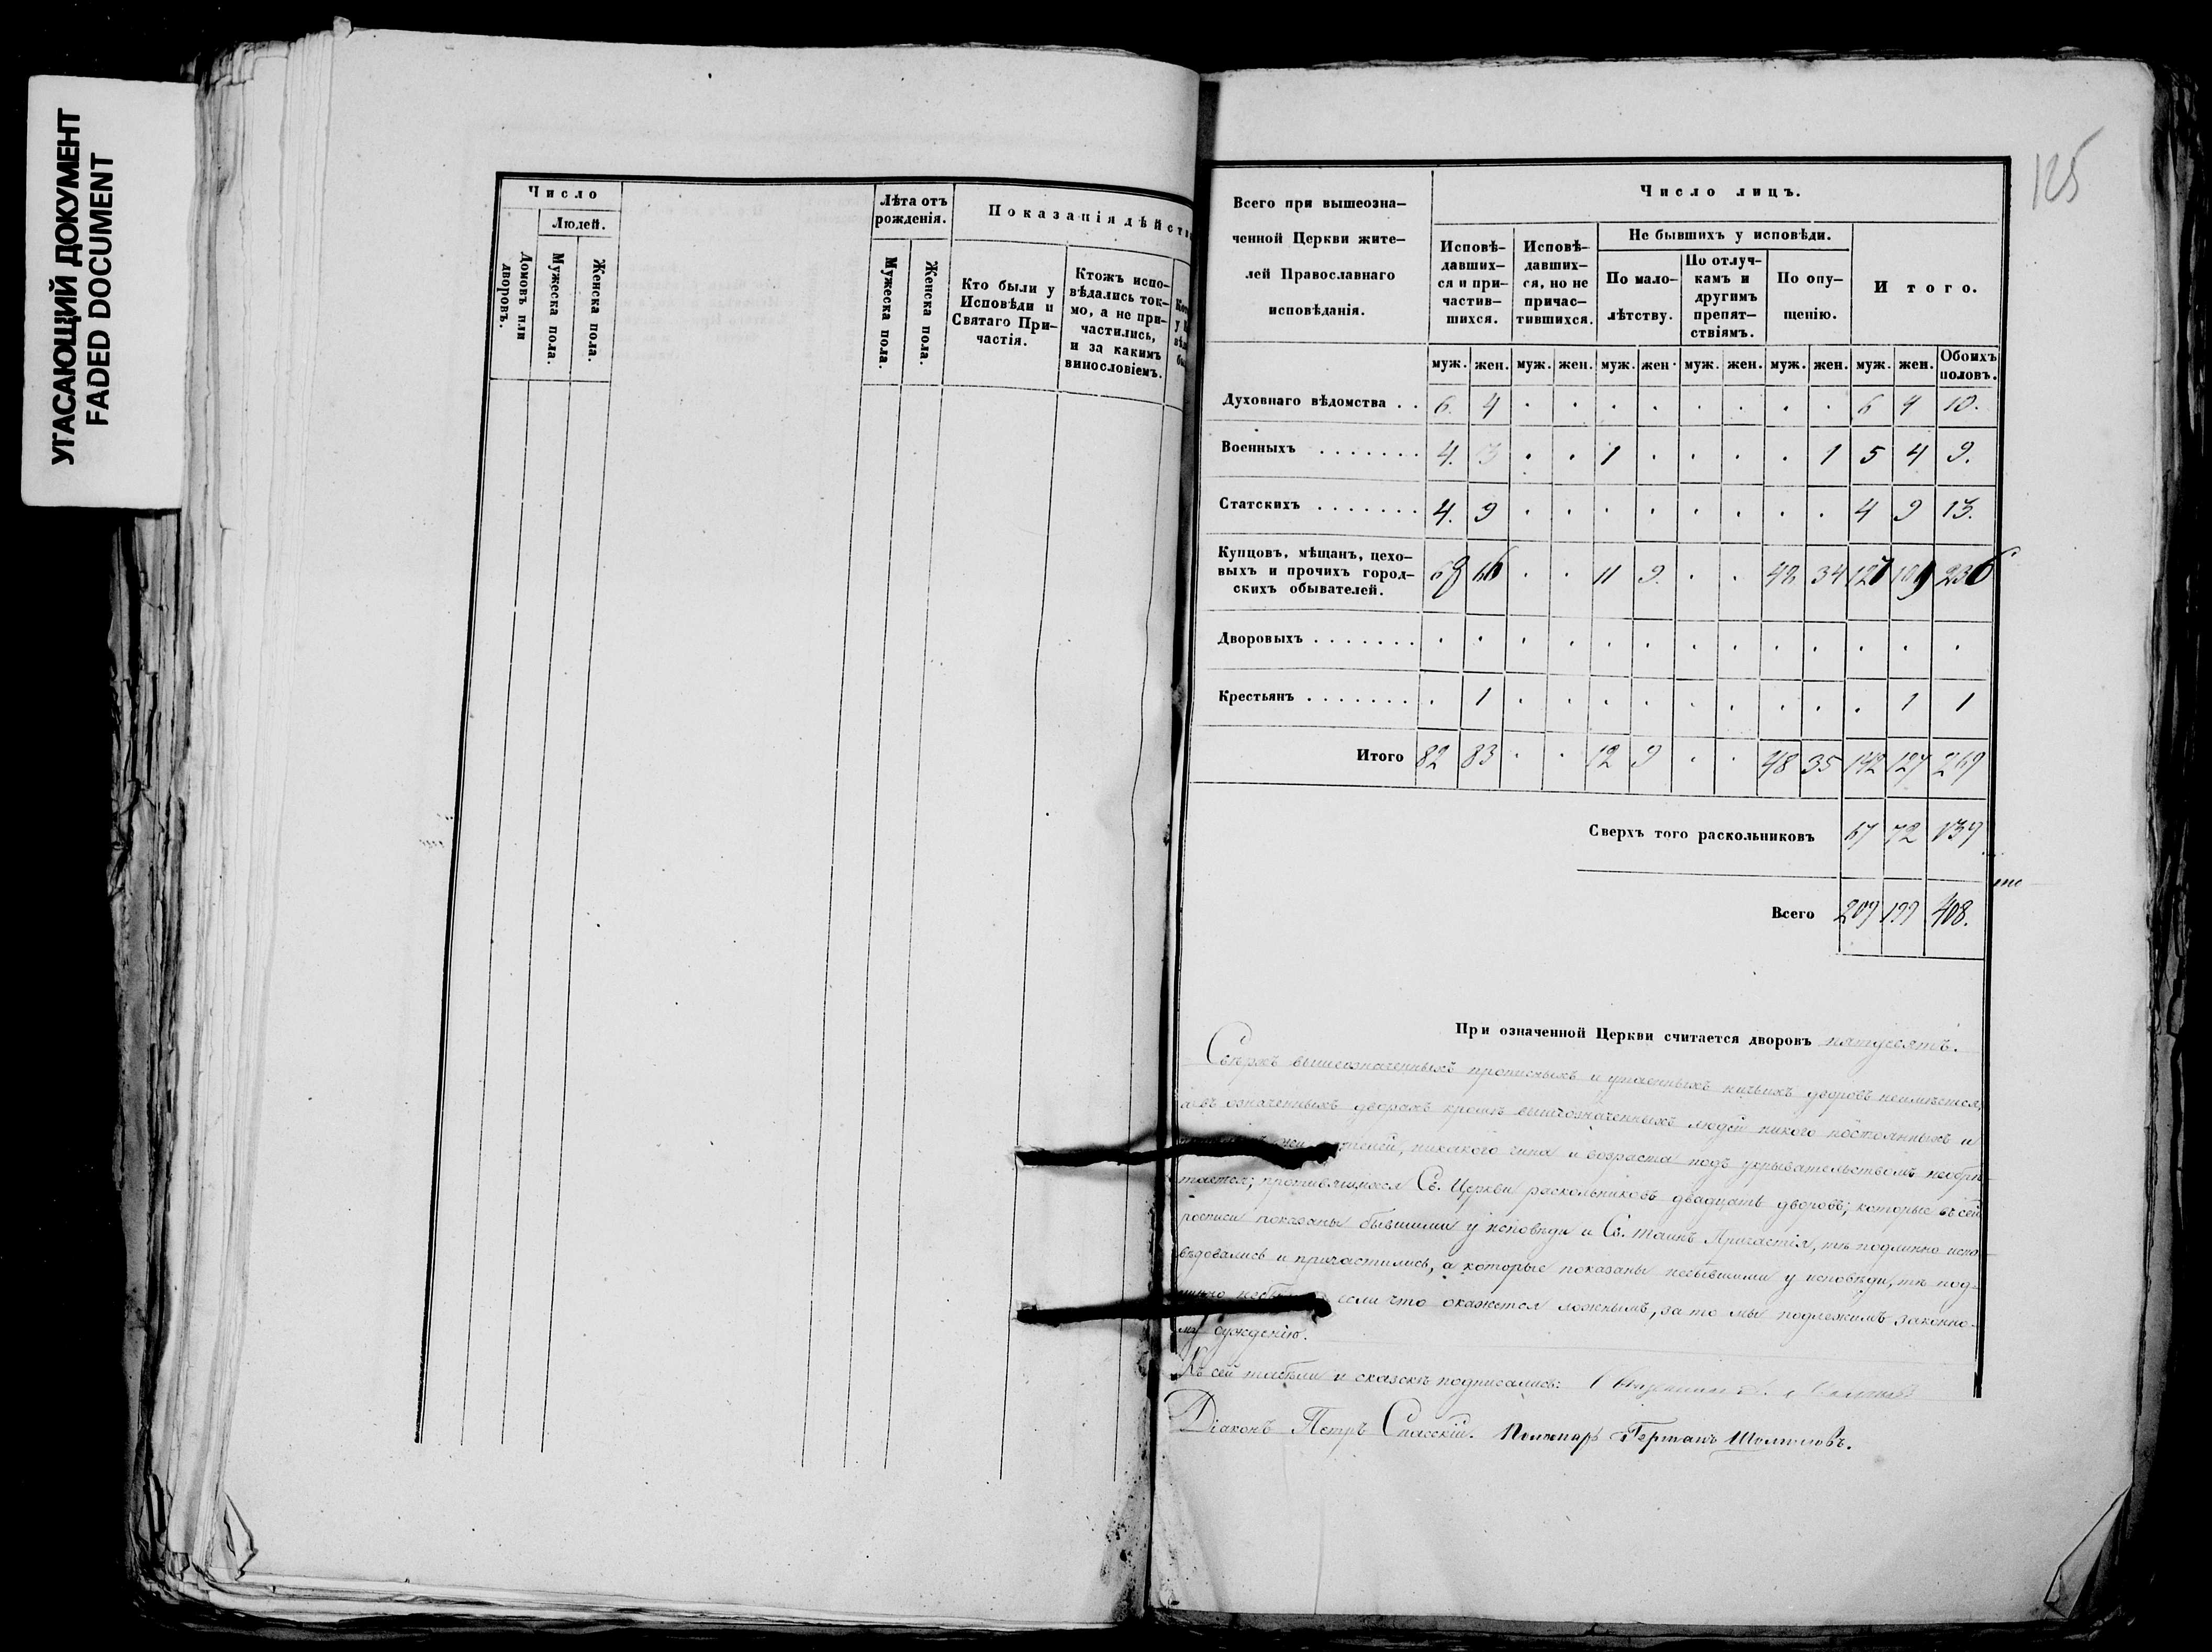 УГАСАЮЩИЙ ДОКУМЕНТ
FADED DOCUMENT
Число
Людей.
Домовъ или дворовъ.
Мужеска пола.
Женска пола.
Лѣта отъ рожденія.
Мужеска пола.
Женска пола.
Показанія дѣйств
Кто были у
Исповѣди и
Святаго При-
частія.
Ктожъ испо-
вѣдались ток-
мо, а не при-
частились,
и за какимъ
винословіемъ.
125
Всего при вышеозна-
ченной Церкви жите-
лей Православнаго
исповѣданія.
Число лицъ.
Исповѣ-
давших-
ся и при-
частив-
шихся.
Исповѣ-
давших-
ся, но не
причас-
тившихся.
Не бывшихъ у исповѣди.
По мало-
лѣтству.
По отлуч-
камъ и
другимъ
препят-
ствіямъ.
По опу-
щенію.
Итого.
муж. жен. муж. жен. муж. жен. муж. жен. муж. жен. муж. жен. Обоихъ половъ.
Духовнаго вѣдомства . . 6. 4 . . . . . . . . 6 4 10.
Военныхъ . . . . . . . 4. 3 . . 1 . . . . 1 5 4 9.
Статскихъ . . . . . . . 4. 9 . . . . . . . . 4 9 13.
Купцовъ, мѣщанъ, цехо-
выхъ и прочихъ город-
скихъ обывателей. 68 66 . . 11 9. . . 48 34 127 109 236
Дворовыхъ . . . . . . . . . . . . . . . . . . . .
Крестьянъ . . . . . . . . 1 . . . . . . . . . 1 1
Итого 82 83 . . 12 9 . . 48 35 142 127 269
Сверхъ того раскольниковъ 67 72 139
Всего 209 199 408.
При означенной Церкви считается дворовъ пятдесятъ.
Сверхъ вышеозначенныхъ прописныхъ и утаенныхъ ничьихъ дворовъ неимѣется,
а въ означенныхъ дворахъ кромѣ вышеозначенныхъ людей никого постоянныхъ и
никакого чина и возраста подъ укрывательствомъ необрѣ-
тается; противляющихся Св. Церкви раскольниковъ двадцать дворовъ; которые въ сей
росписи показаны бывшими у исповѣди и Св. Таинъ Причастія, тѣ подлинно испо-
вѣдовались и причастились, а которые показаны небывшими у исповѣди, тѣ под-
если что окажется ложнымъ, за то мы подлежимъ законно-
му сужденію.
Къ сей табели и сказкѣ подписались:
Діаконъ Петръ Спасскій. Пономарь Германъ